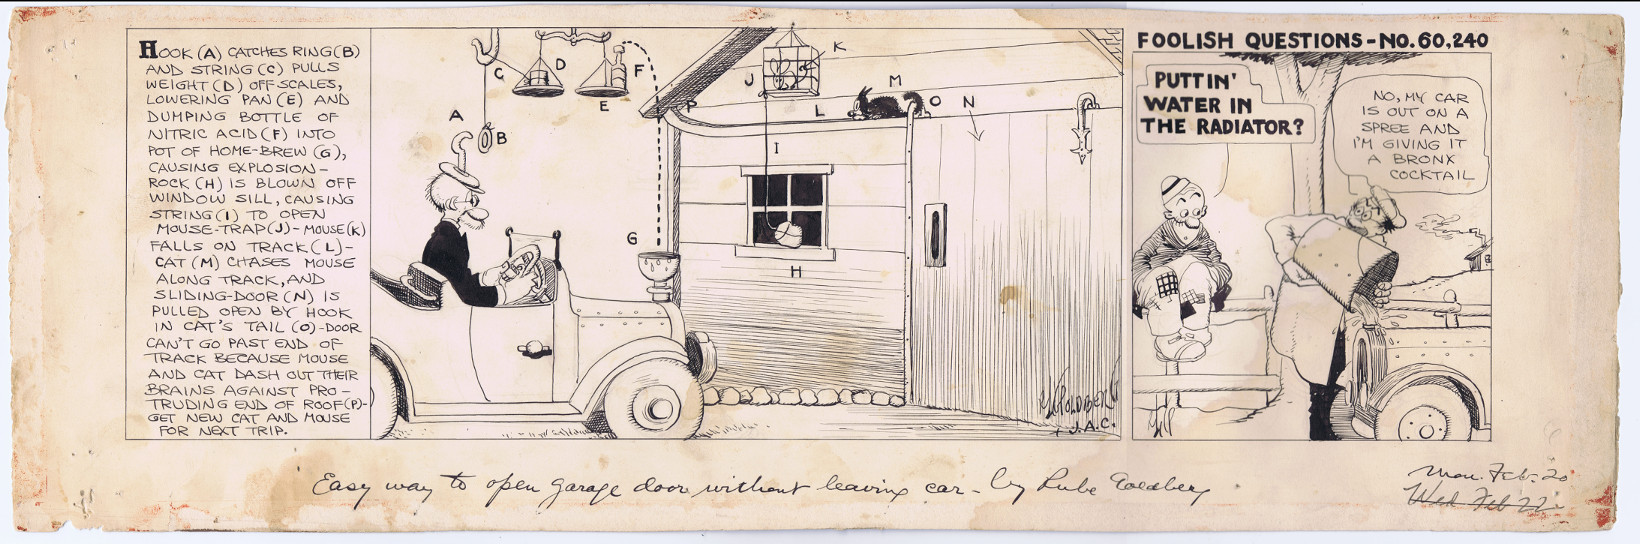 HOOK (A) CATCHES RING (B)
AND STRING (C) PULLS
WEIGHT (D) OFF SCALES,
LOWERING PAN (E) AND
DUMPING BOTTLE OF
NITRIC ACID (F) INTO
POT OF HOME-BREW (G),
CAUSING EXPLOSION-
ROCK (H) IS BLOWN OFF
WINDOW SILL, CAUSING
STRING (I) TO OPEN
MOUSE-TRAP (J)-MOUSE (K)
FALLS ON TRACK (L)-
CAT (M) CHASES MOUSE
ALONG TRACK, AND
SLIDING-DOOR (N) IS
PULLED OPEN BY HOOK
IN CAT'S TAIL (O)-DOOR
CAN'T GO PAST END OF
TRACK BECAUSE MOUSE
AND CAT DASH OUT THEIR
BRAINS AGAINST PRO-
TRUDING END OF ROOF (P)-
GET NEW CAT AND MOUSE
FOR NEXT TRIP.
A
B
C
D
E
F
G
H
I
J
K
L
M
O
N
P
GOLDBERG
+ J.A.C.
FOOLISH QUESTIONS-NO. 60,240
PUTTIN'
WATER IN
THE RADIATOR?
NO, MY CAR
IS OUT ON A
SPREE AND
I'M GIVING IT
A BRONX
COCKTAIL
Easy way to open garage door without leaving car - by Rube Goldberg
Mon. Feb. 20
Wed Feb 22